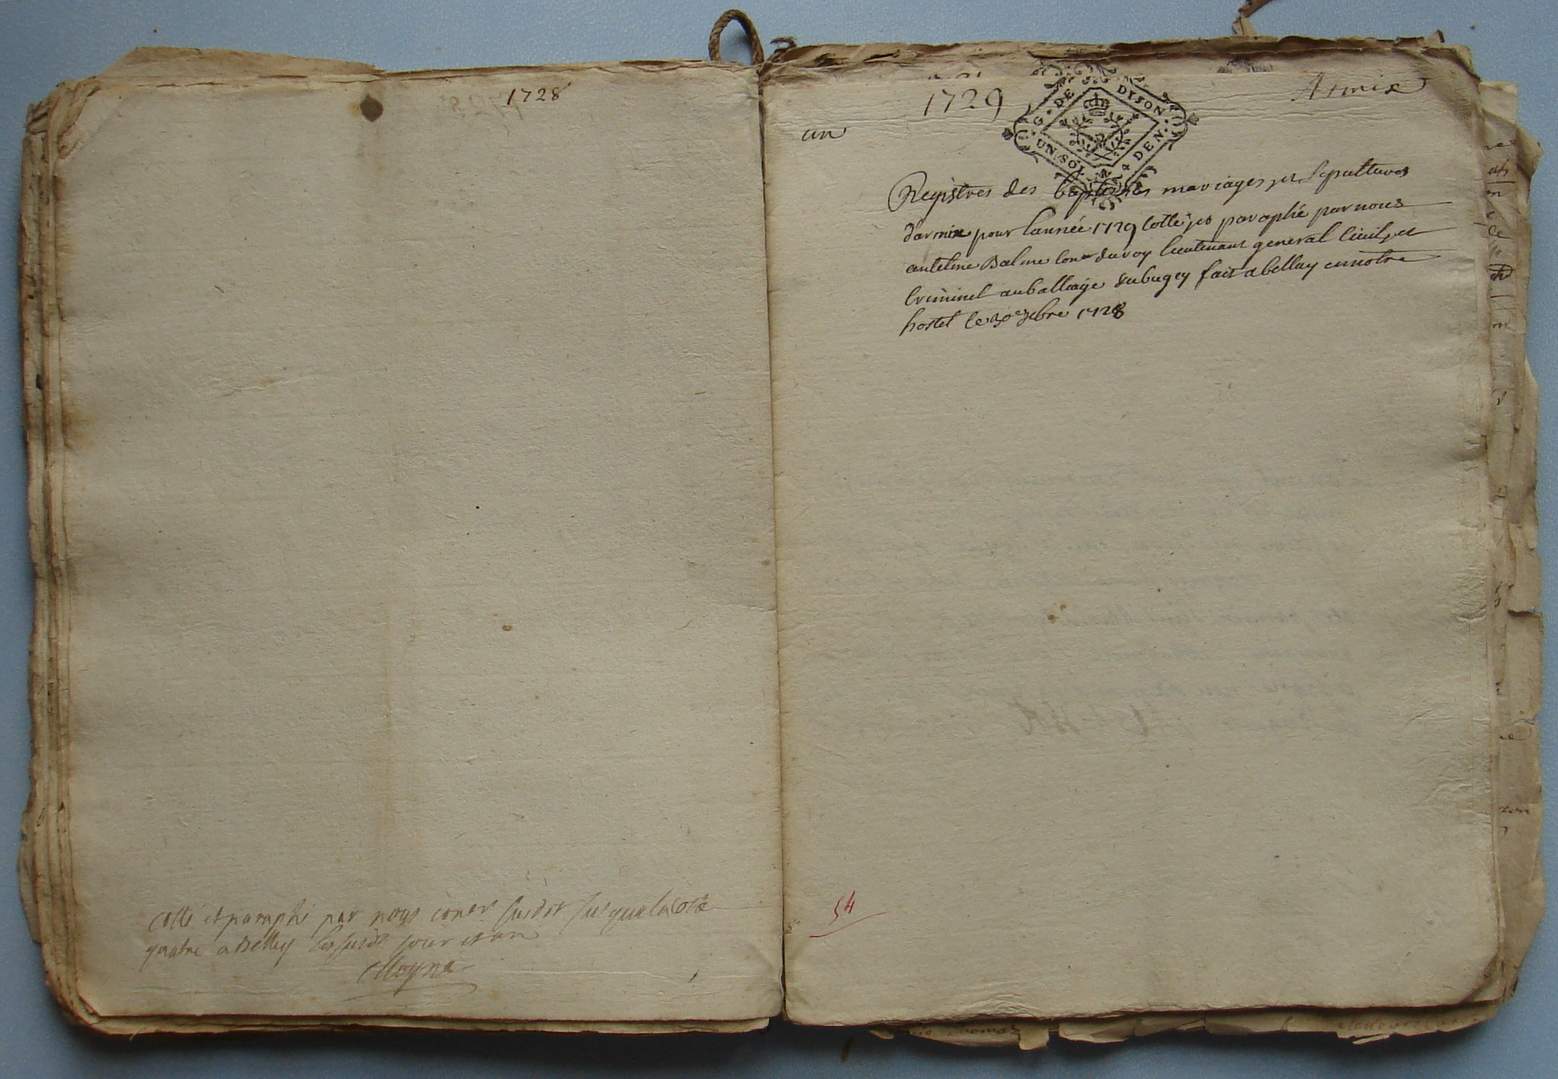 1728
cotté et paraphé par nous coner susdit jusque la cotte
quatre a Belley les susdit jour et an
Moyne
1729
Armix
un
G. DE DIJON
UN SOL 4 DEN.
Registres des baptemes mariages et Sepultures
d'armix pour l'année 1729 cotté et paraphé par nous
antelme Balme coner du roy lieutenant general civil et
criminel au balliage du bugey fait a bellay en notre
hostel le 30e xbre 1728
54